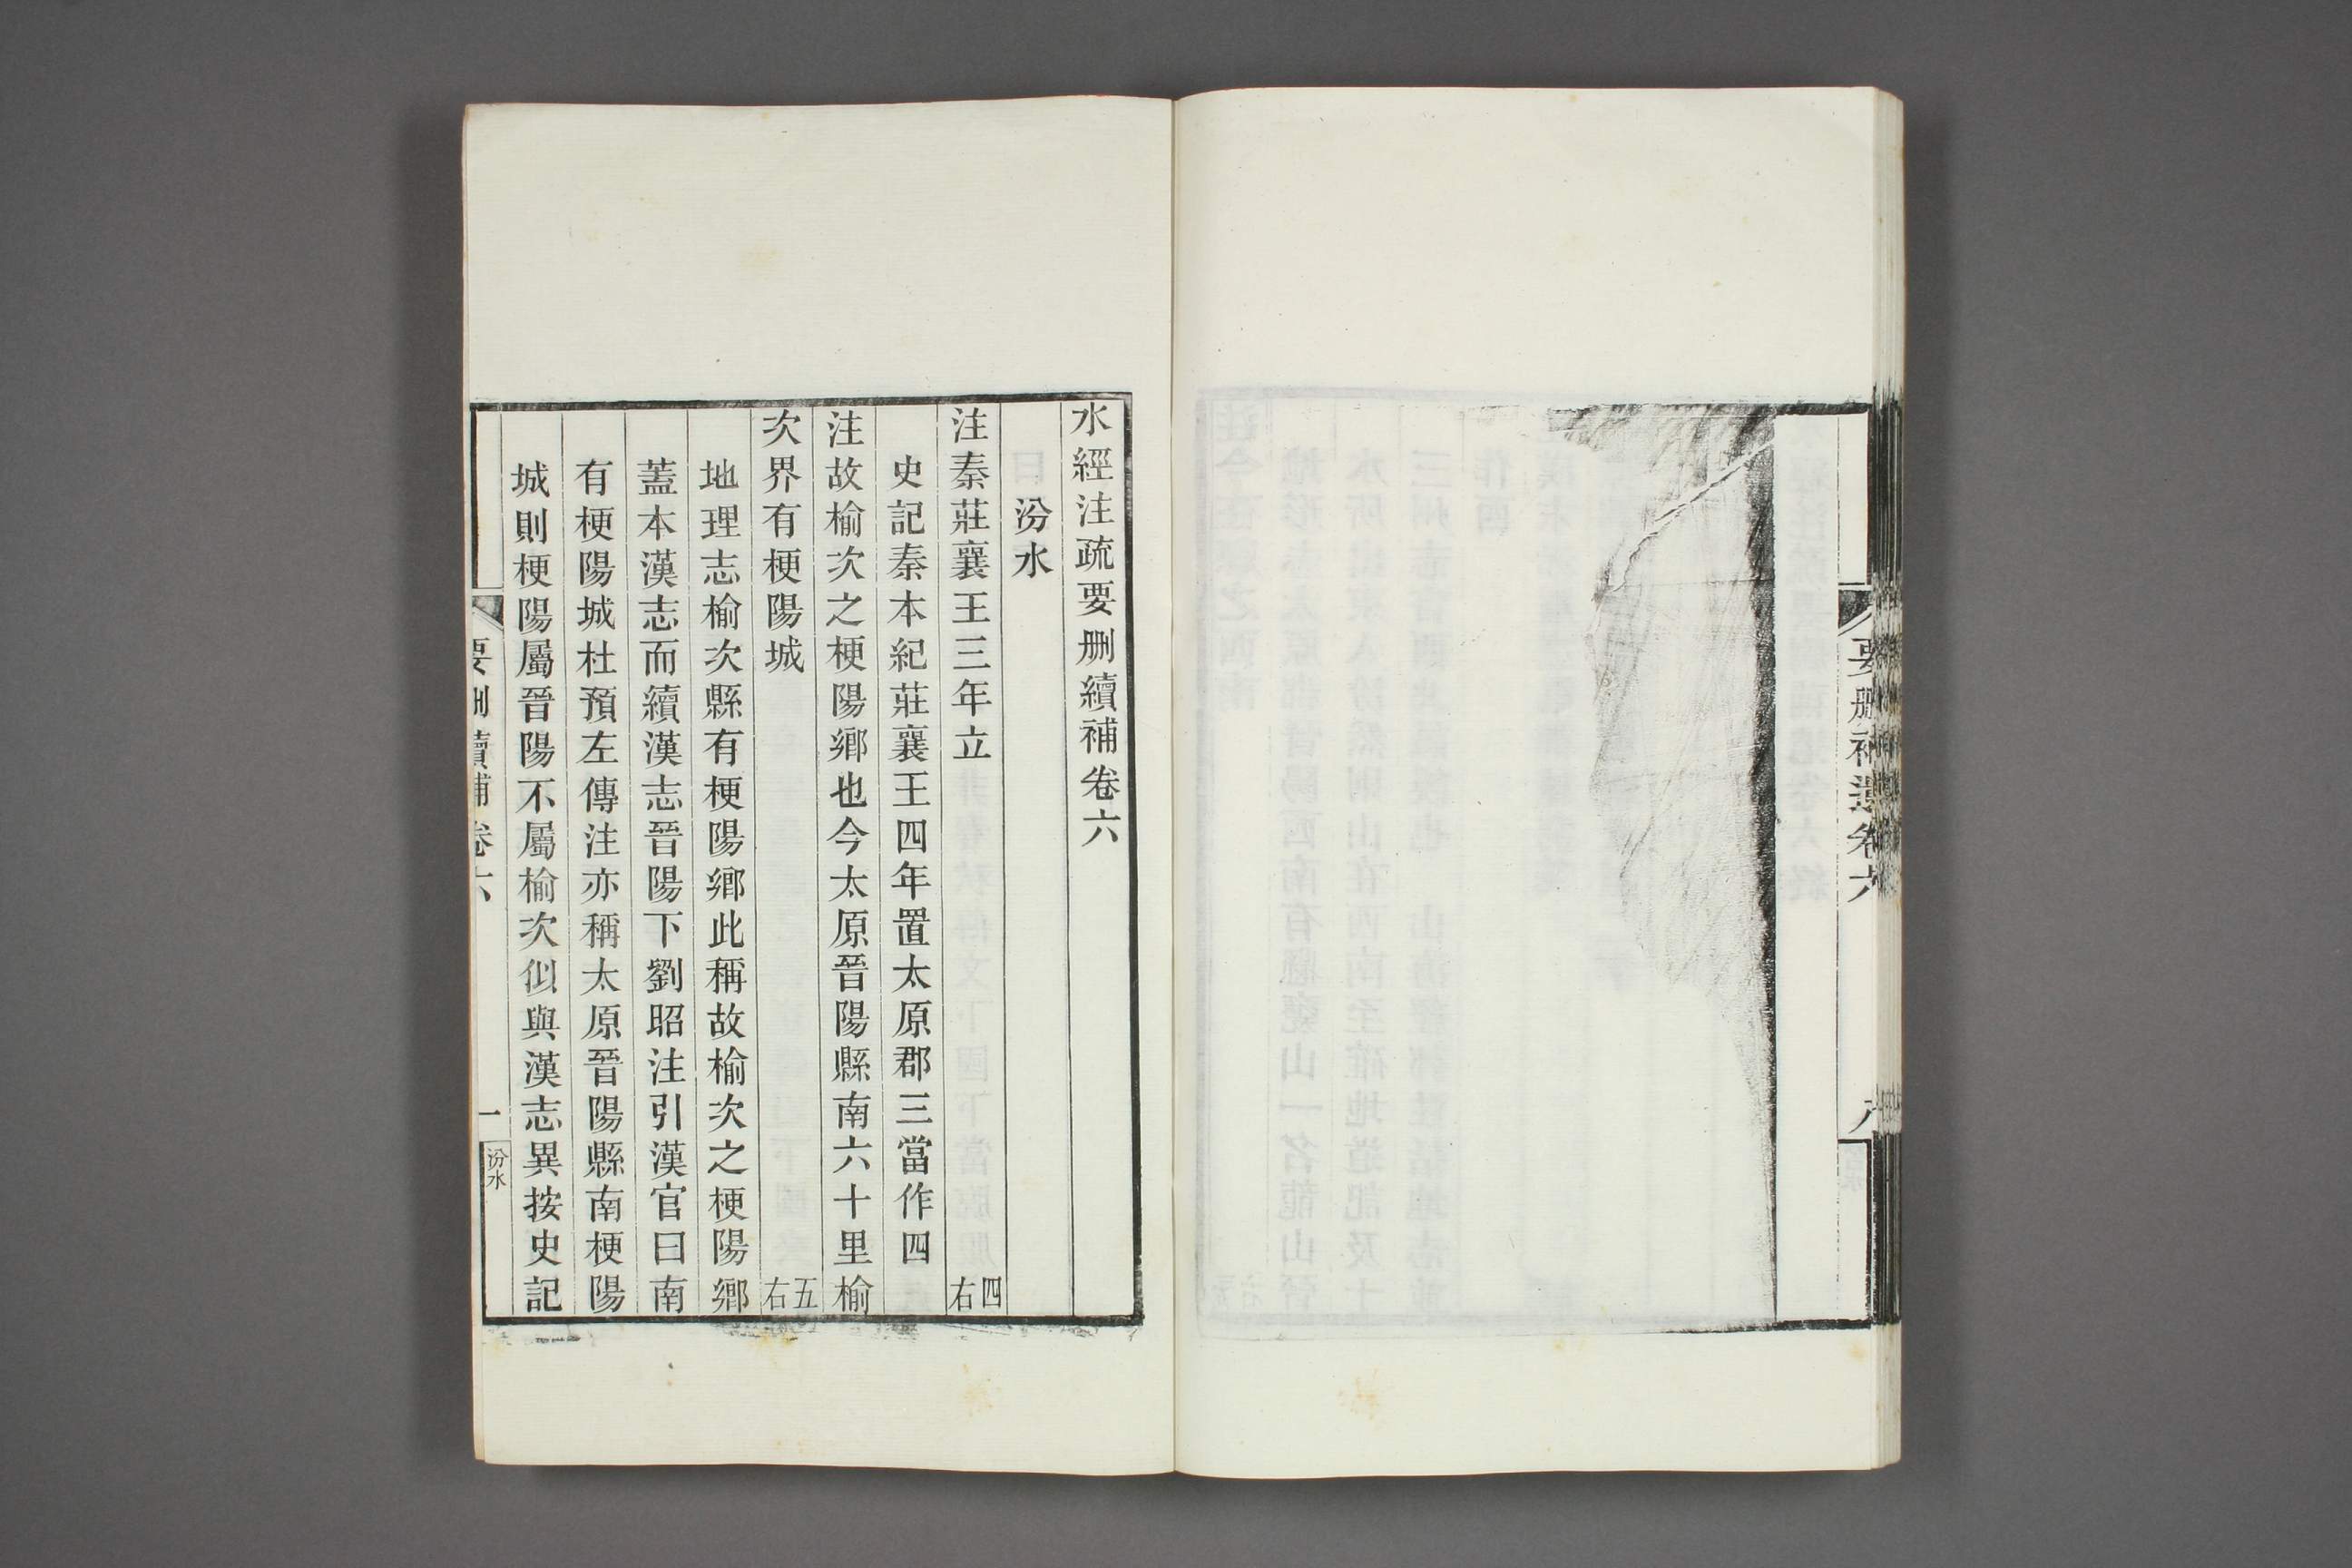 要刪補遺卷六
水經注疏要刪續補卷六
汾水
注秦莊襄王三年立 四右
史記秦本紀莊襄王四年置太原郡三當作四
注故榆次之梗陽鄉也今太原晉陽縣南六十里榆
次界有梗陽城 五右
地理志榆次縣有梗陽鄉此稱故榆次之梗陽鄉
蓋本漢志而續漢志晉陽下劉昭注引漢官曰南
有梗陽城杜預左傳注亦稱太原晉陽縣南梗陽
城則梗陽屬晉陽不屬榆次似與漢志異按史記
要刪續補卷六
一
汾水